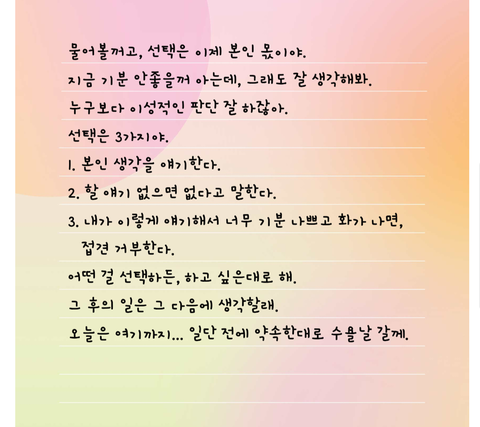 물어볼꺼고, 선택은 이제 본인 몫이야.
지금 기분 안좋을꺼 아는데, 그래도 잘 생각해봐.
누구보다 이성적인 판단 잘 하잖아.
선택은 3가지야.
1. 본인 생각을 얘기한다.
2. 할 얘기 없으면 없다고 말한다.
3. 내가 이렇게 얘기해서 너무 기분 나쁘고 화가 나면,
접견 거부한다.
어떤 걸 선택하든, 하고 싶은대로 해.
그 후의 일은 그 다음에 생각할래.
오늘은 여기까지... 일단 전에 약속한대로 수욜날 갈께.